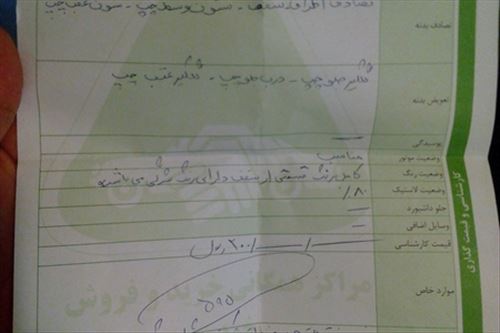 تصادف بدنه تصادف اطراف سقف - ستون وسط چپ - ستون عقب چپ
تعویض بدنه گلگیر جلو چپ - درب جلو چپ - گلگیر عقب چپ
پوسیدگی —
وضعیت موتور مناسب
وضعیت رنگ کامل رنگ قسمتی از سقف دارای رنگ شرکتی می باشد
وضعیت لاستیک ۸۰٪
جلو داشبورد —
وسایل اضافی —
قیمت کارشناسی ۳۰۰/—/— ریال
موارد خاص
کارشناسی و قیمت گذاری
مراکز همگانی خرید و فروش
۵۹۵